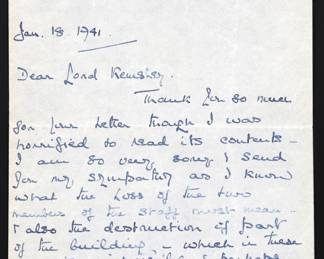 Jan. 18 1941.
Dear Lord Kemsley.
Thank you so much
for your letter though I was
horrified to read its contents –
I am so very sorry & send
you my sympathy as I know
what the loss of the two
members of the staff must mean –
& also the destruction of part
of the building – which in these